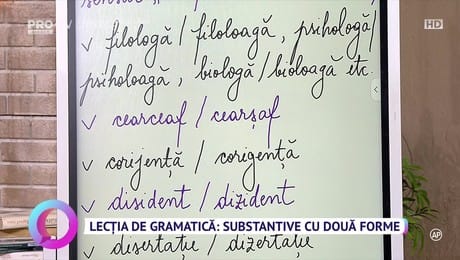 PRO•TV
HD
✓ filologă / filoloagă, psihologă/
psiholoagă, biologă/bioloagă etc.
✓ cearceaf / cearșaf
✓ corijență / corigență
✓ disident / dizident
LECȚIA DE GRAMATICĂ: SUBSTANTIVE CU DOUĂ FORME
AP
✓ disertație / dizertație